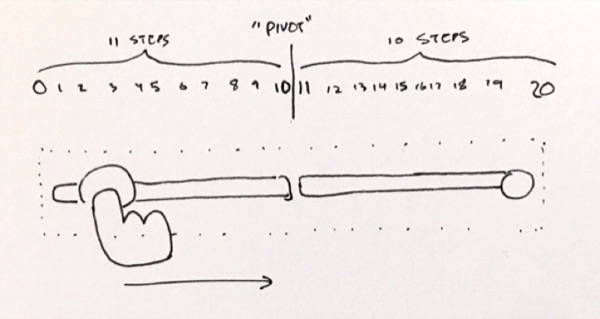 "PIVOT"
11 STEPS
10 STEPS
0 1 2 3 4 5 6 7 8 9 10 11 12 13 14 15 16 17 18 19 20